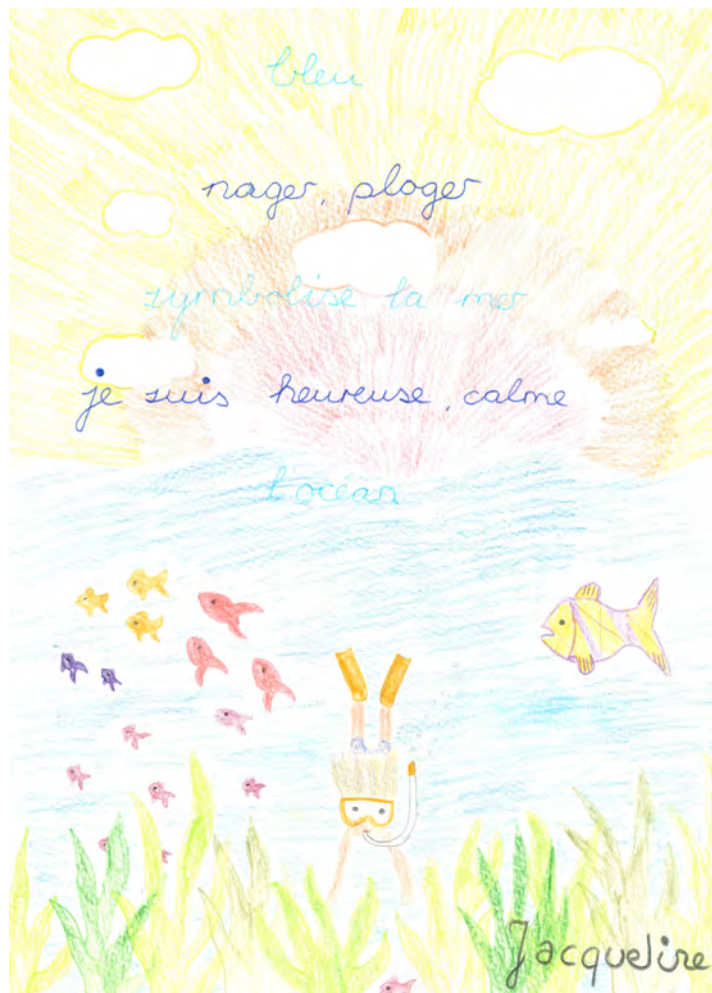 bleu
nager, ploger
symbolise la mer
je suis heureuse, calme
l'océan
Jacqueline